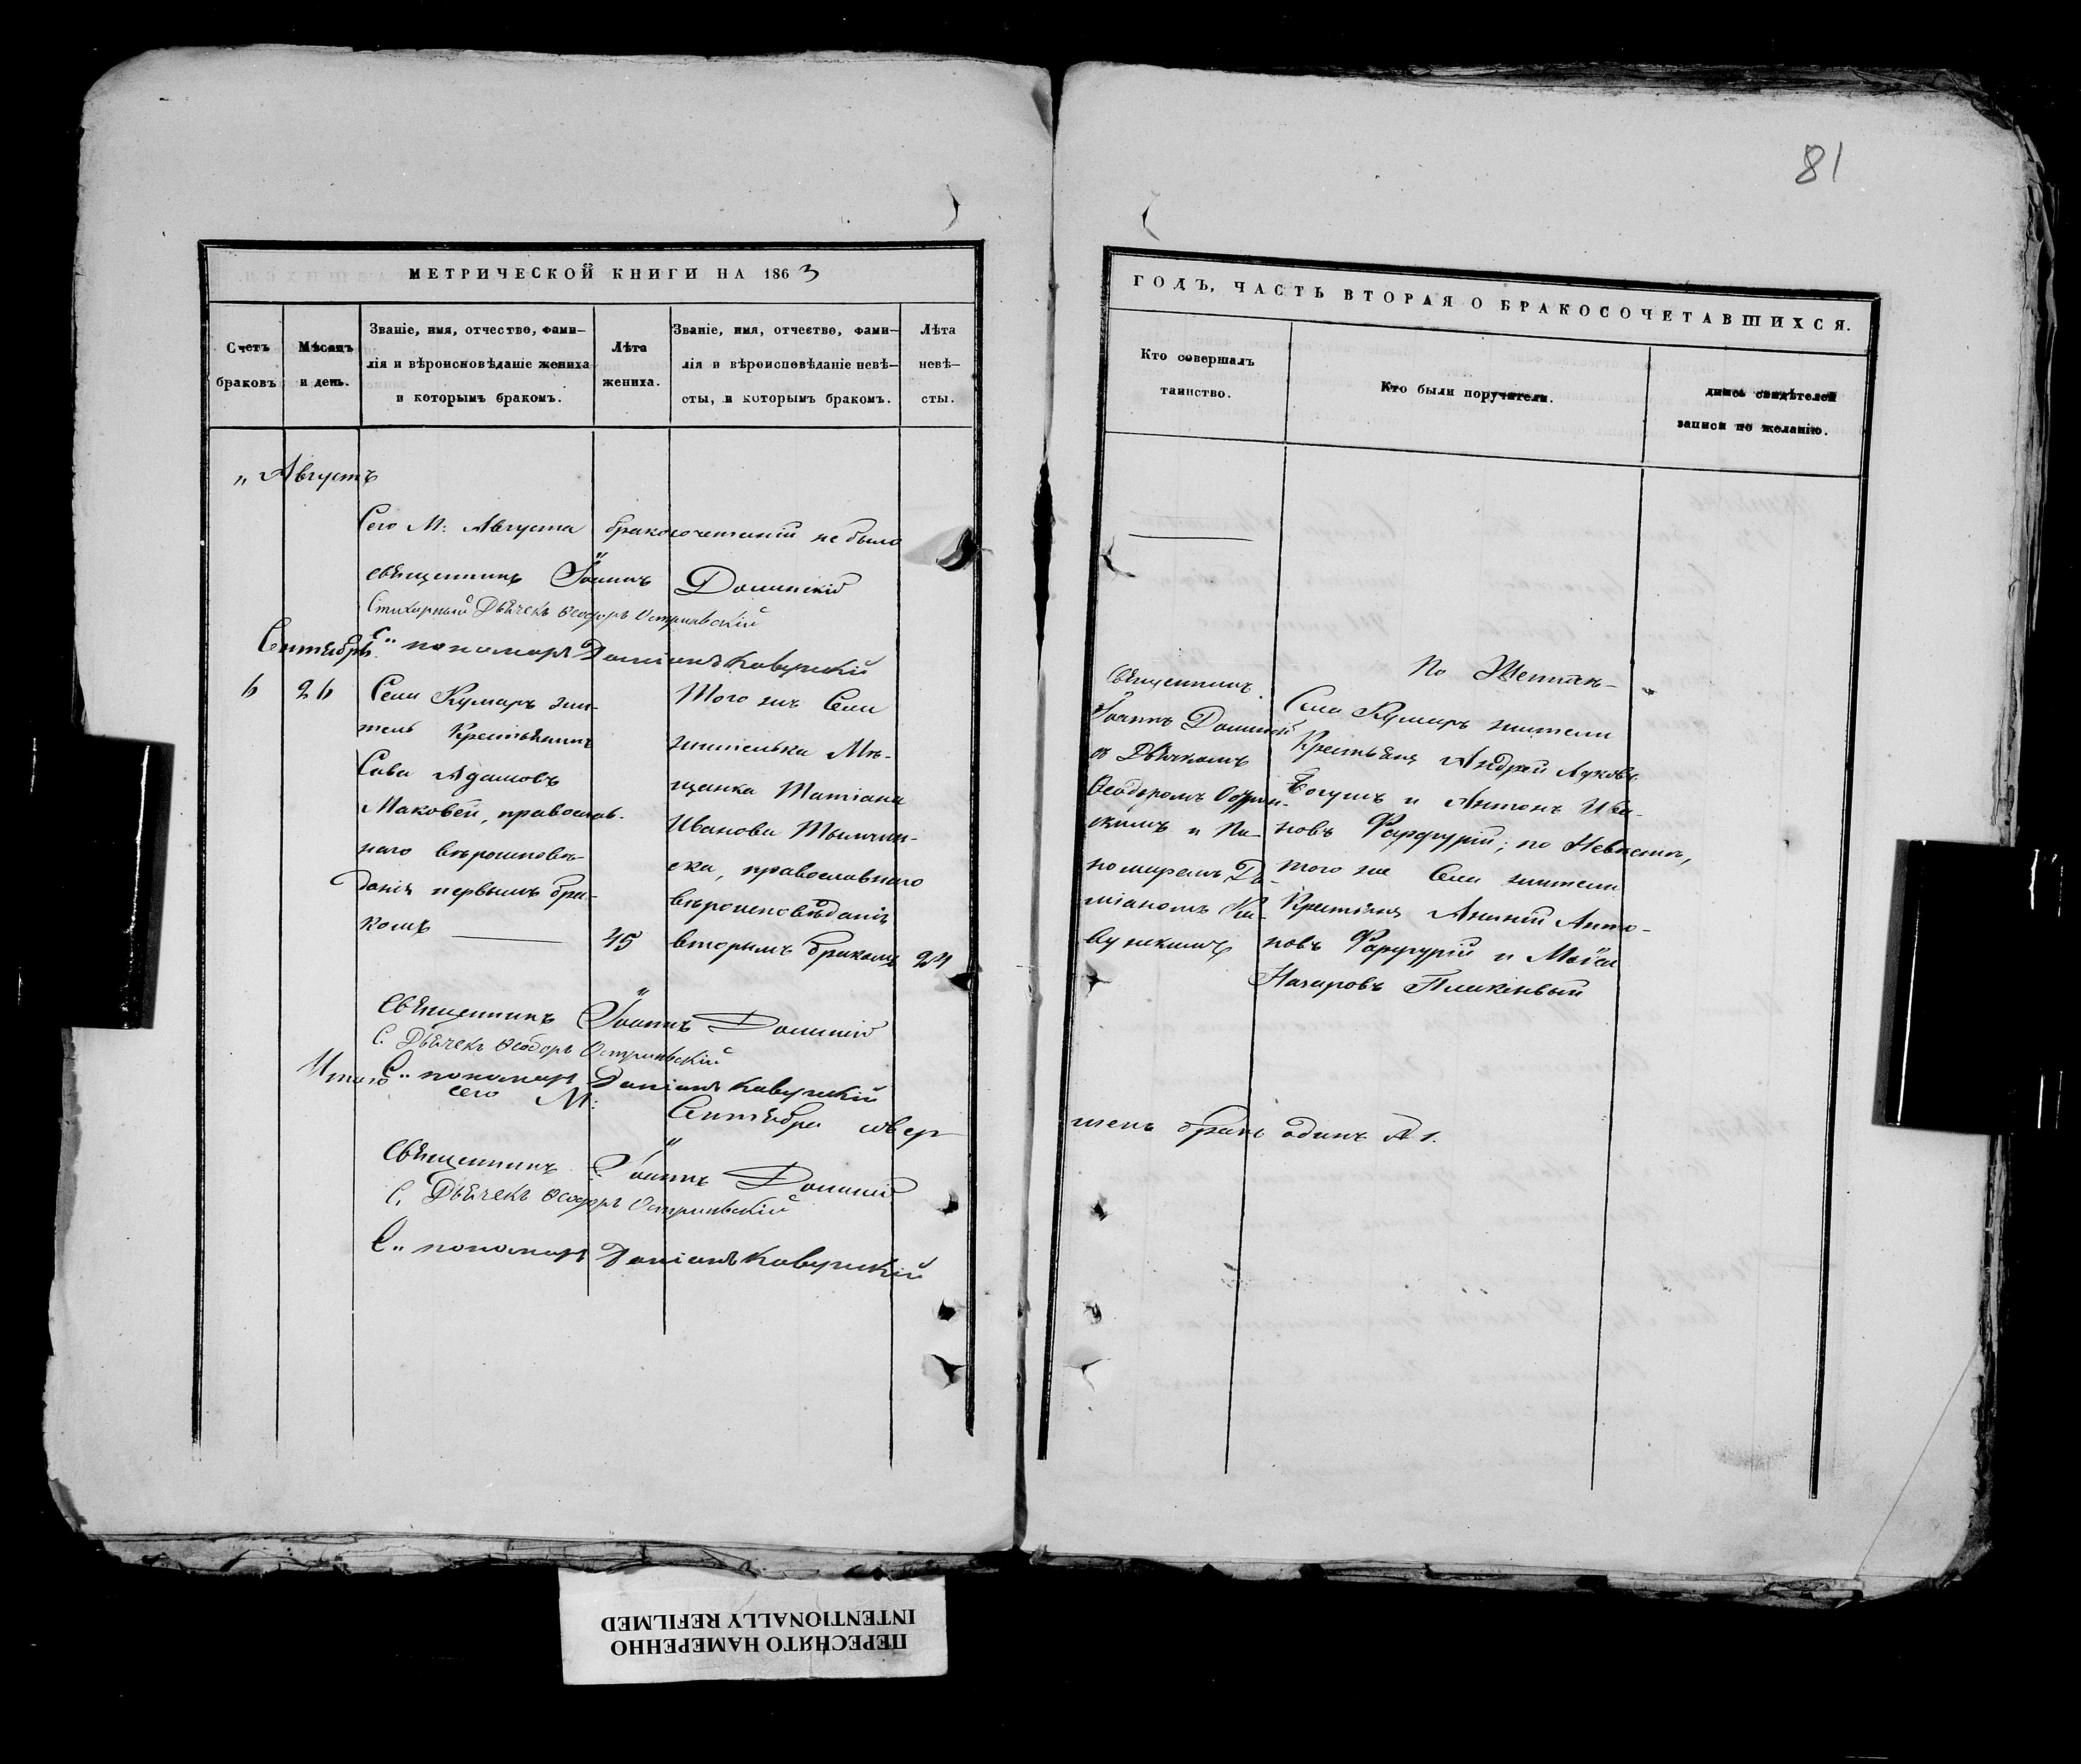 81
МЕТРИЧЕСКОЙ КНИГИ НА 1863
Счетъ браковъ
Мѣсяцъ и день.
Званіе, имя, отчество, фами-
лія и вѣроисповѣданіе жениха
и которымъ бракомъ.
Лѣта жениха.
Званіе, имя, отчество, фами-
лія и вѣроисповѣданіе невѣ-
сты, и которымъ бракомъ.
Лѣта невѣ-
сты.
„ Августъ
Сего М: Августа бракосочетаній не было
священникъ Іоаннъ
Стихарный Дьячекъ Ѳеодоръ
Сентябрь С.. пономарь
6 26
Села Кумаръ жи-
тель Крестьянинъ
Сава Адамовъ
Маковей, православ-
наго вѣроисповѣ-
данія первымъ бра-
комъ
45
Того жъ Села
жителька Мѣ-
щанка Татіана
Иванова
ска, православнаго
вѣроисповѣданія
вторымъ бракомъ
24
Священникъ Іоаннъ
С. Дьячекъ Ѳеодоръ
С.. пономарь
Итого сего М: Сентября совер
Священникъ Іоаннъ
С. Дьячекъ Ѳеодоръ
С.. пономарь
ГОДЪ, ЧАСТЬ ВТОРАЯ О БРАКОСОЧЕТАВШИХСЯ.
Кто совершалъ
таинство.
Кто были поручители.
дпись свидѣтелей
записи по желанію.
Священникъ
Іоаннъ
съ Дьячкомъ
Ѳеодоромъ
скимъ и По-
номаремъ Да-
міаномъ Ка-
По Женихѣ-
Села Кумаръ жители
Крестьяне Андрей Луковъ
Богушъ и Антонъ Ива-
новъ Фарфурій; по Невѣстѣ,
того же Села жители
Крестьяне Ананій Анто-
новъ Фарфурій и
Назаровъ
шенъ бракъ одинъ № 1.
ПЕРЕСНЯТО НАМЕРЕННО
INTENTIONALLY REFILMED